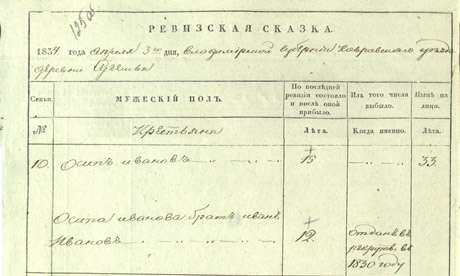 125 об
РЕВИЗСКАЯ СКАЗКА.
1834 года Апреля 3го дня, Владимирской губернии Ковровскаго уезда
деревни
Семьи.
МУЖЕСКІЙ ПОЛЪ.
По послѣдней ревизіи состояло и послѣ оной прибыло.
Изъ того числа выбыло.
Нынѣ на лицо.
№
Крестьяне
Лѣта.
Когда именно.
Лѣта.
10. Осипъ Ивановъ 15 33.
Осипа Иванова братъ Иванъ
Ивановъ 12. отданъ въ
рекруты въ
1830 году